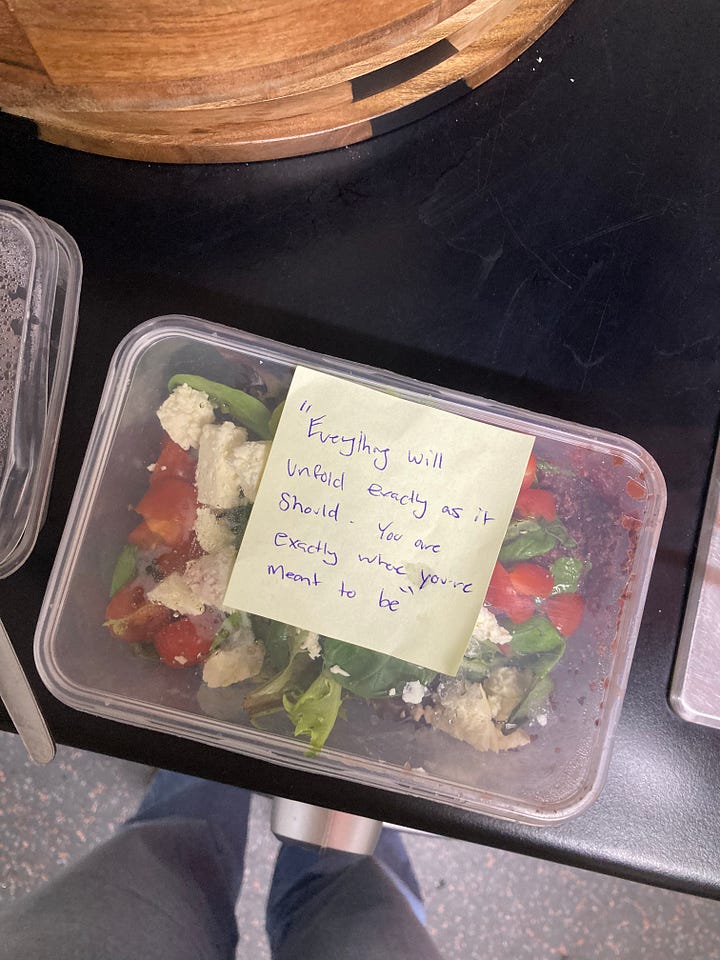 "Everything will
unfold exactly as it
Should. You are
exactly where you're
meant to be"